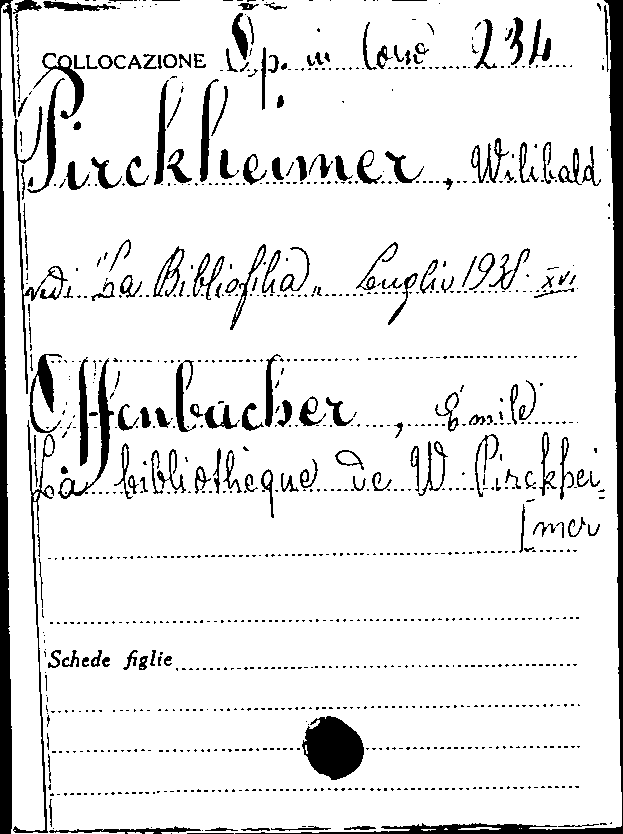 COLLOCAZIONE Op. in cons 234
Pirckheimer, Wilibald
vedi "La Bibliofilia" Luglio 1938. XVI
Offenbacher, Emile
La bibliotheque de W. Pirckhei=
[mer
Schede figlie